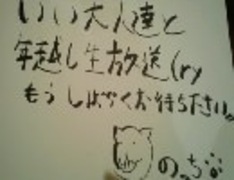 いい大人達と
年越し生放送(ry
もうしばらくお待ちださい。
のっち